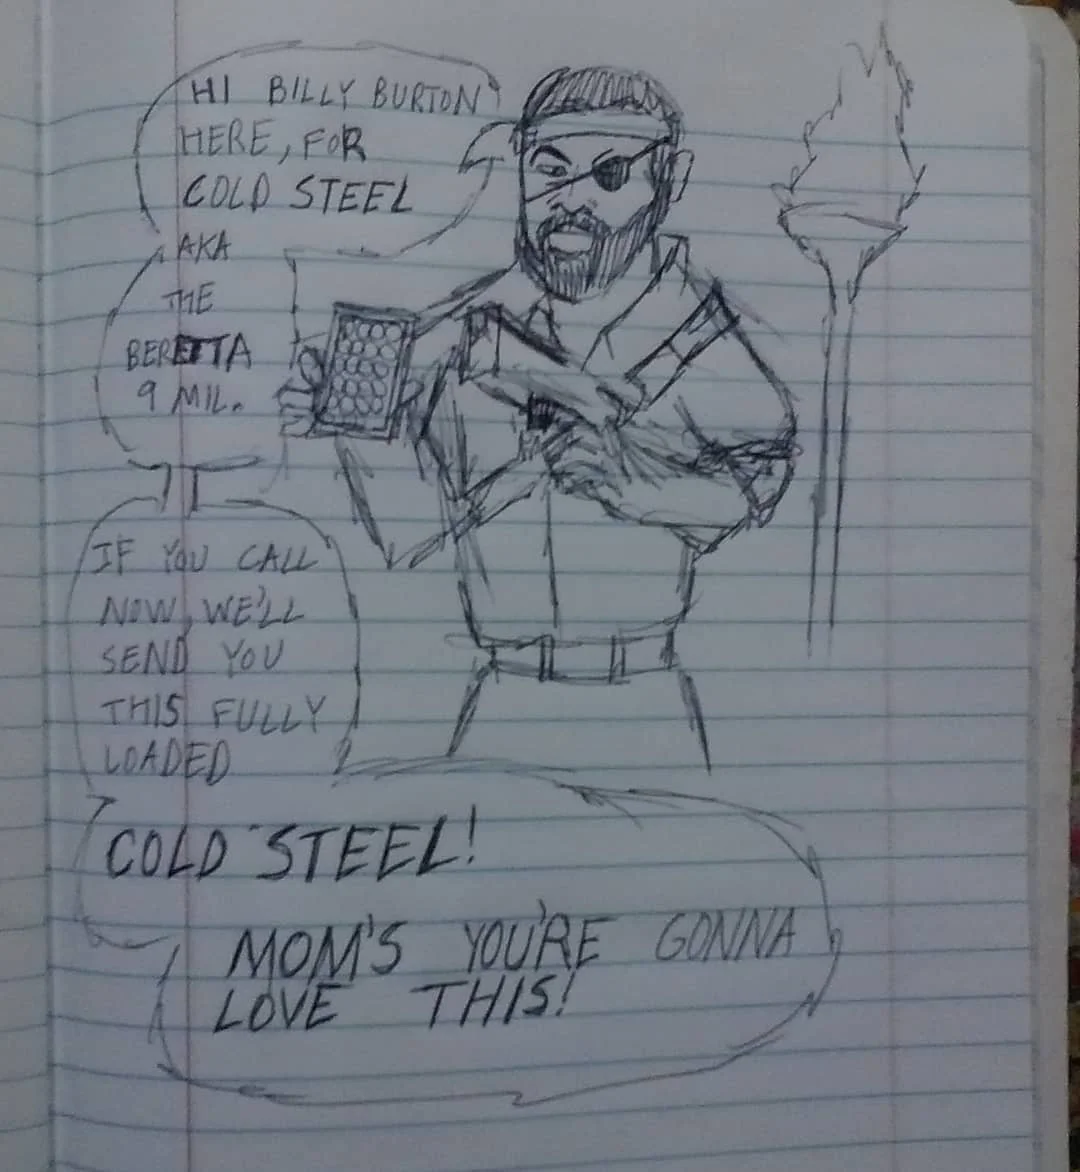 HI BILLY BURTON
HERE, FOR
COLD STEEL
AKA
THE
BERETTA
9 MIL.
IF YOU CALL
NOW, WE'LL
SEND YOU
THIS FULLY
LOADED
COLD STEEL!
MOM'S YOU'RE GONNA
LOVE THIS!